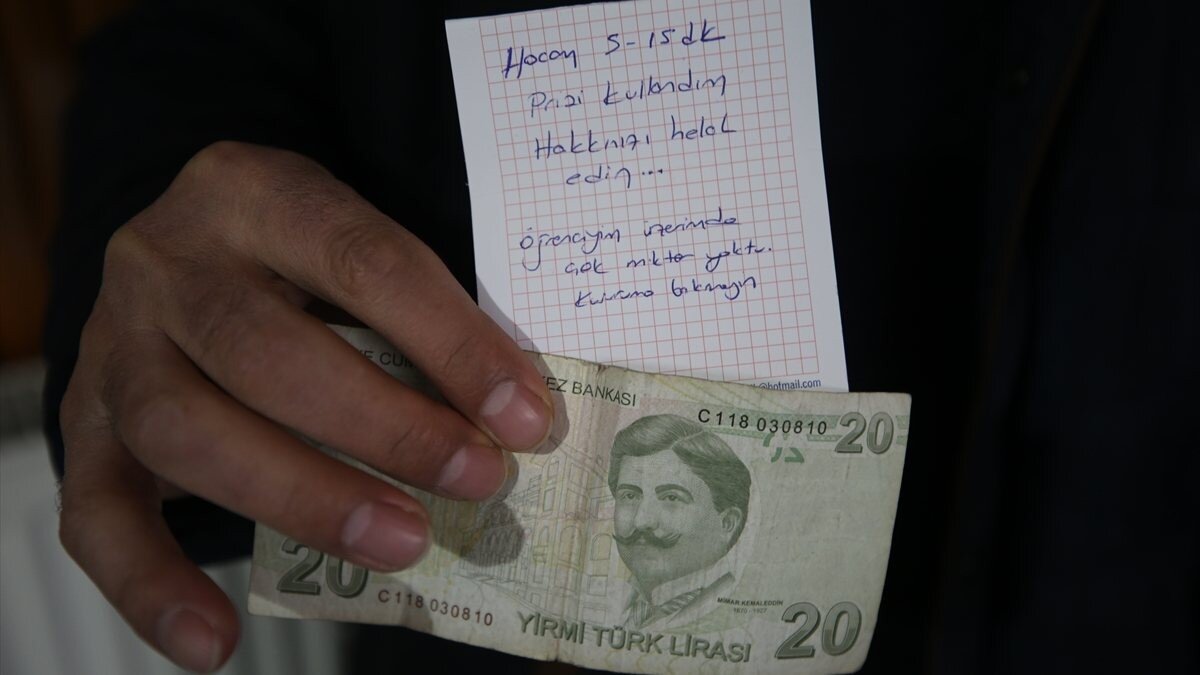 Hocam 5-15 dk
Prizi kullandım
Hakkınızı helal
edin...
Öğrenciyim üzerimde
çok miktar yoktu.
Kusura bakmayın
@hotmail.com
EZ BANKASI
C118 030810
20
MİMAR KEMALEDDİN
1870 - 1927
20
C118 030810
YİRMİ TÜRK LİRASI
20